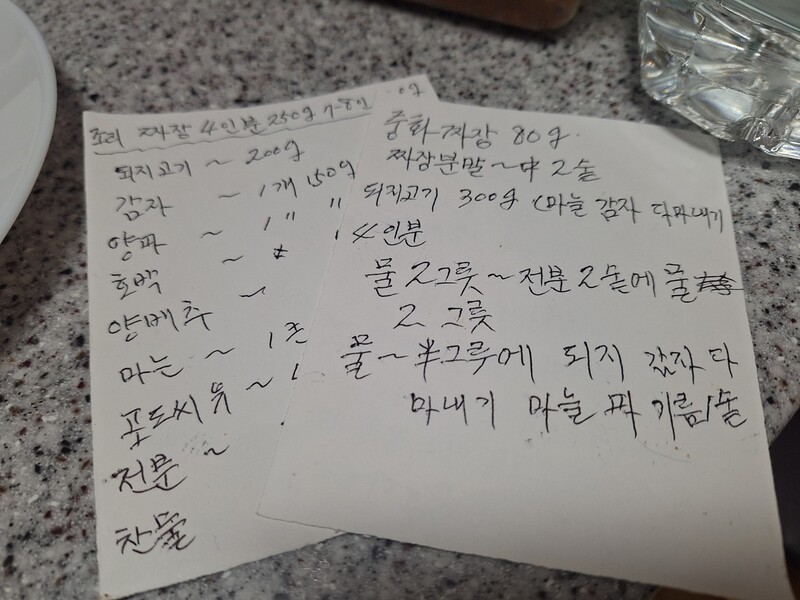 조리 짜장 4인분 250g 7-8인
돼지고기 ~ 200g
감자 ~ 1개 150g
양파 ~ 1 " "
호박 ~
양배추 ~
마는 ~ 1
포도씨유 ~ 1
전분 ~
찬물
중화짜장 80g.
짜장분말 ~ 中 2숟
돼지고기 300g (마늘 감자 다마내기
4인분
물 2그릇 ~ 전분 2숟에 물
2 그릇
물 ~ 半그루에 되지 감자 다
마내기 마늘 파 기름 1숟